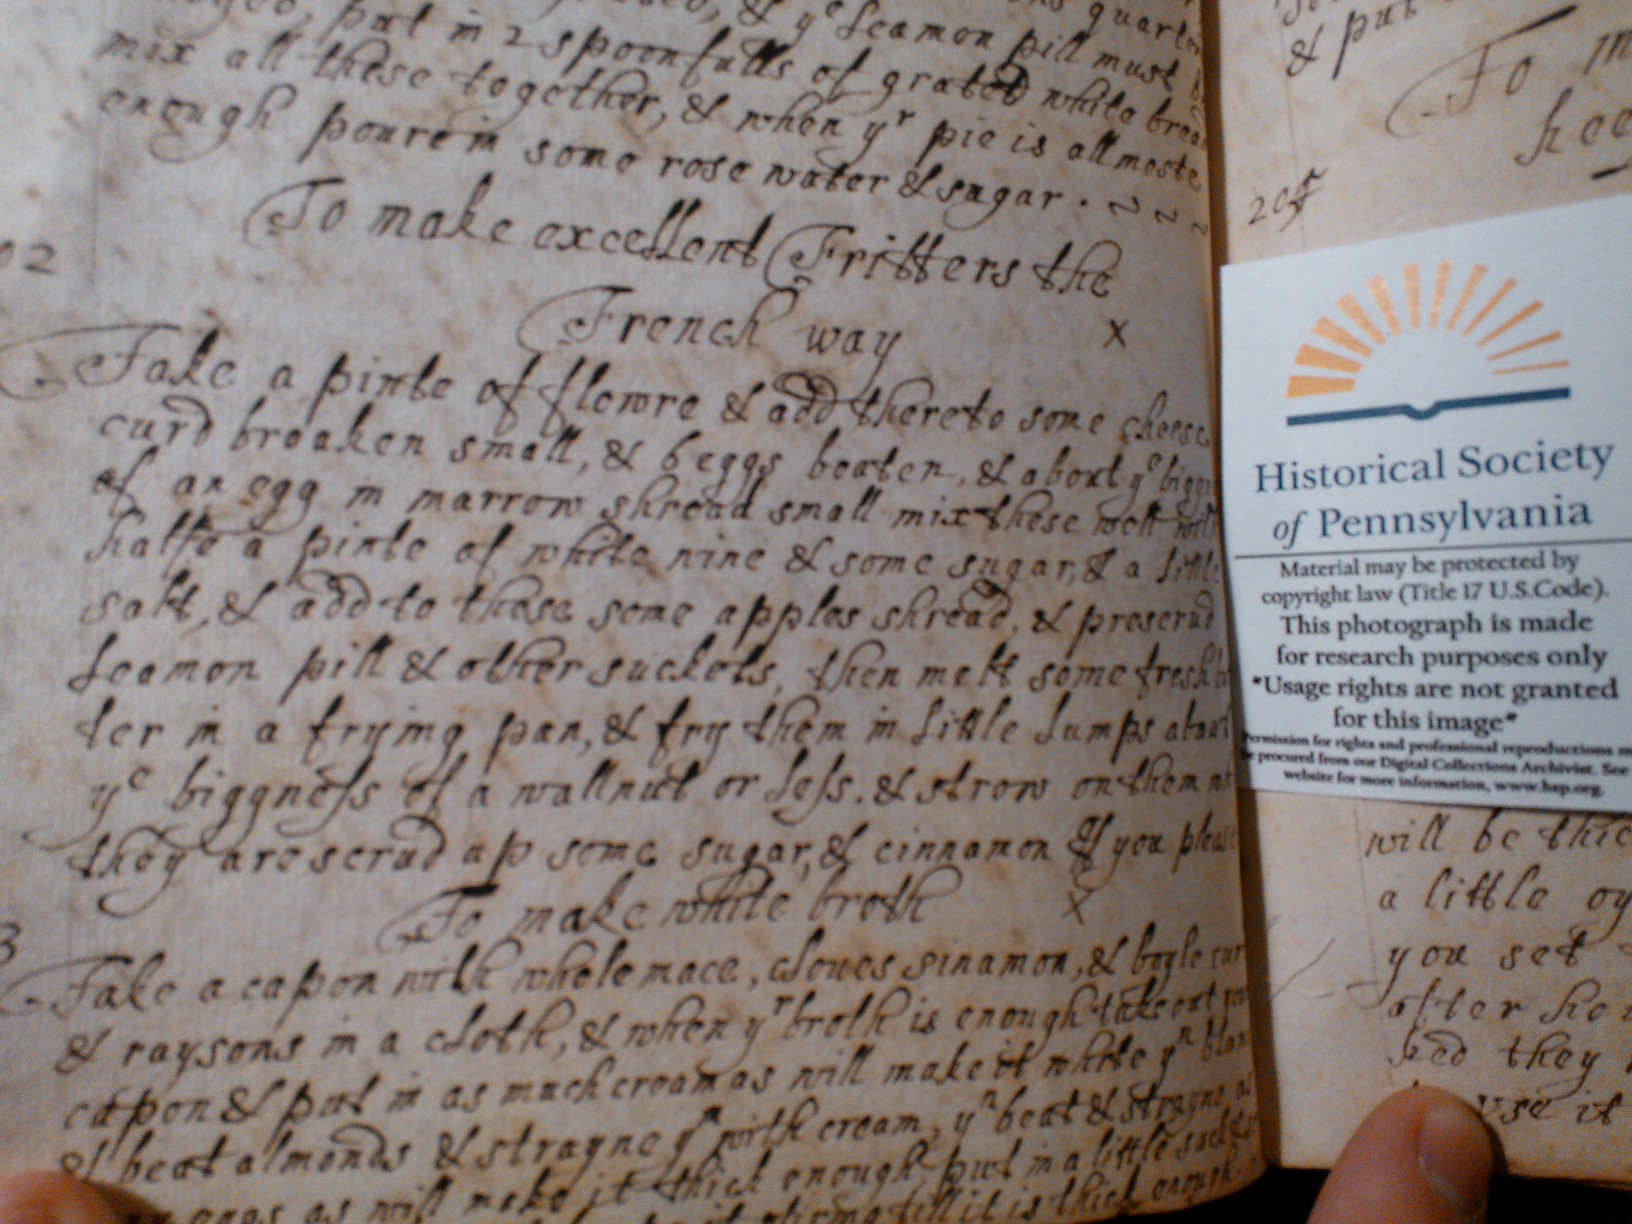 put in 2 spoonfulls of grated white bread
mix all these together, & when yr pie is allmoste
enough poure in some rose water & sugar . ~ ~ ~
02
To make excellent Fritters the
French way x
Take a pinte of flowre & add thereto some cheese
curd broaken small, & 6 eggs beaten, & about ye biggn
of an egg in marrow shread small mix these well with
halfe a pinte of white wine & some sugar, & a little
salt, & add to these some apples shread, & preserud
Leamon pill & other suckets, then melt some fresh
ter in a frying pan, & fry them in little Lumps about
ye biggness of a wallnut or less. & strow on them
they are serud up some sugar, & cinnamon If you please
To make white broth x
3
Take a capon with whole mace, cloues sinamon, & boyle cur
& raysons in a cloth, & when yr broth is enough take out your
capon & put in as much cream as will make it white yn blan
& beat almonds & strayne ym with cream, yn beat & strayne
eggs as will make it thick enough, put in a little sack &
it stiring till it is thick enough.
& put
To m
kee
205
Historical Society
of Pennsylvania
Material may be protected by
copyright law (Title 17 U.S.Code).
This photograph is made
for research purposes only
*Usage rights are not granted
for this image*
Permission for rights and professional reproductions m
procured from our Digital Collections Archivist. See
website for more information, www.hsp.org.
will be thic
a little oy
you set
after
they
vse it